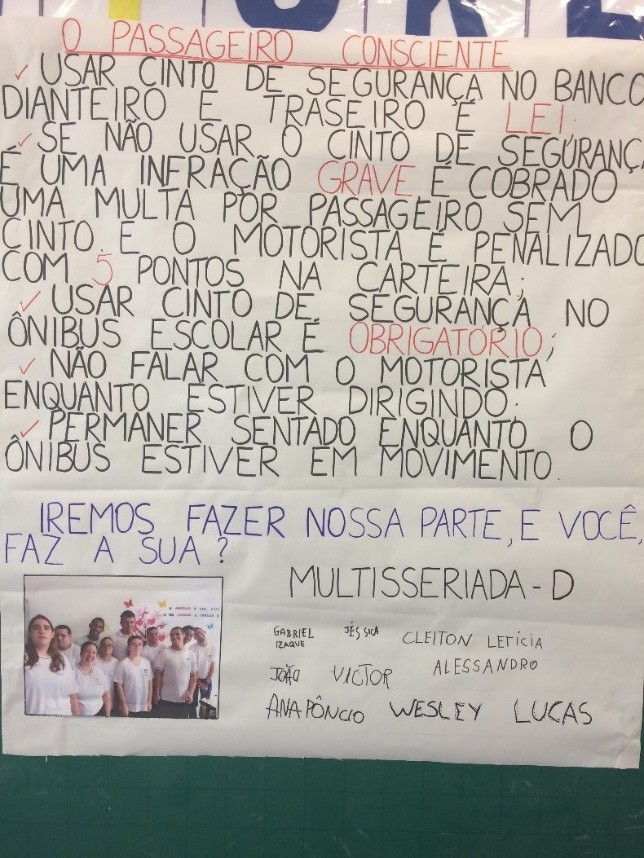 O PASSAGEIRO CONSCIENTE
✓ USAR CINTO DE SEGURANÇA NO BANCO
DIANTEIRO E TRASEIRO É LEI.
✓ SE NÃO USAR O CINTO DE SEGURANÇA
É UMA INFRAÇÃO GRAVE É COBRADO
UMA MULTA POR PASSAGEIRO SEM
CINTO E O MOTORISTA É PENALIZADO
COM 5 PONTOS NA CARTEIRA;
✓ USAR CINTO DE SEGURANÇA NO
ÔNIBUS ESCOLAR É OBRIGATÓRIO;
✓ NÃO FALAR COM O MOTORISTA
ENQUANTO ESTIVER DIRIGINDO;
✓ PERMANER SENTADO ENQUANTO O
ÔNIBUS ESTIVER EM MOVIMENTO.
IREMOS FAZER NOSSA PARTE, E VOCÊ,
FAZ A SUA?
MULTISSERIADA - D
GABRIEL IZAQUE JÉSSICA CLEITON LETÍCIA
JOÃO VICTOR ALESSANDRO
ANA PÔNCIO WESLEY LUCAS